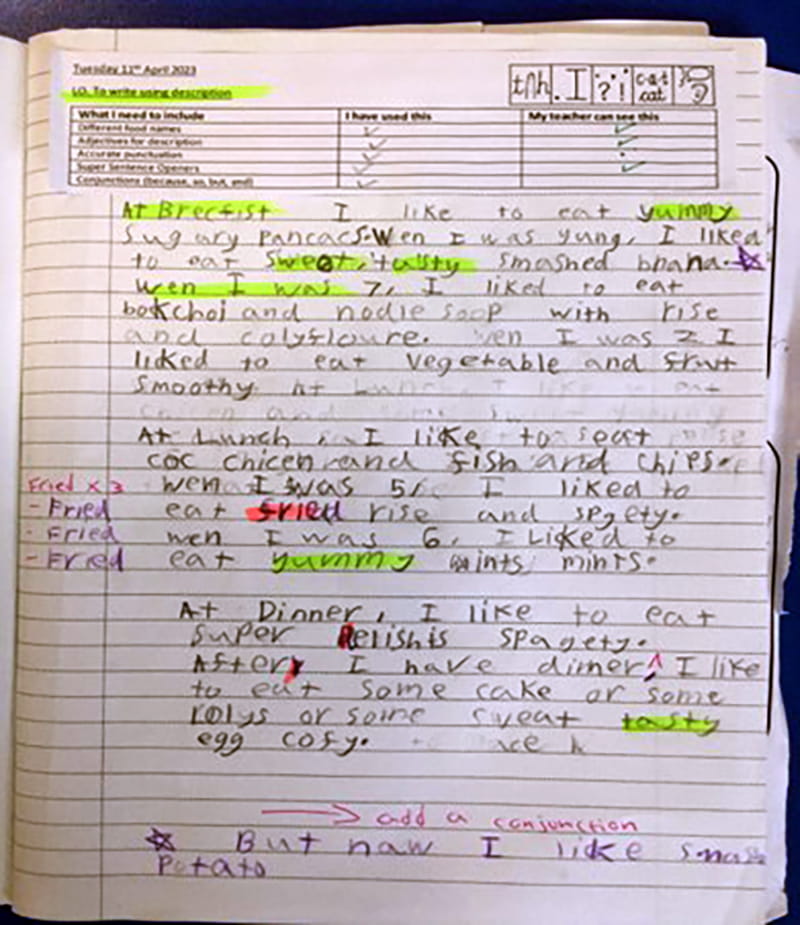 Tuesday 11th April 2023
LO. To write using description
tnh . I ? ! c-a-t cat
What I need to include I have used this My teacher can see this
Different food names
Adjectives for description
Accurate punctuation
Super Sentence Openers
Conjunctions (because, so, but, and)
At Brecfist I like to eat yummy
Sugary Pancacs. Wen I was yung, I liked
to eat sweet, tasty smashed bnana.
Wen I was 7, I liked to eat
bokchoi and nodle soop with rise
and colyfloure. Wen I was 2 I
liked to eat vegetable and frut
Smoothy At Lunch I like eat
and
At Lunch, I like to eat
coc chicen and fish and chips.
Fried x 3 wen I was 5 I liked to
- Fried eat fried rise and spgety.
- Fried wen I was 6, I Liked to
- Fried eat yummy mints.
At Dinner, I like to eat
super delishis spagety.
After I have dinner, I like
to eat some cake or some
rolys or some sweat tasty
egg cofy.
add a conjunction
But naw I like smash
Potato